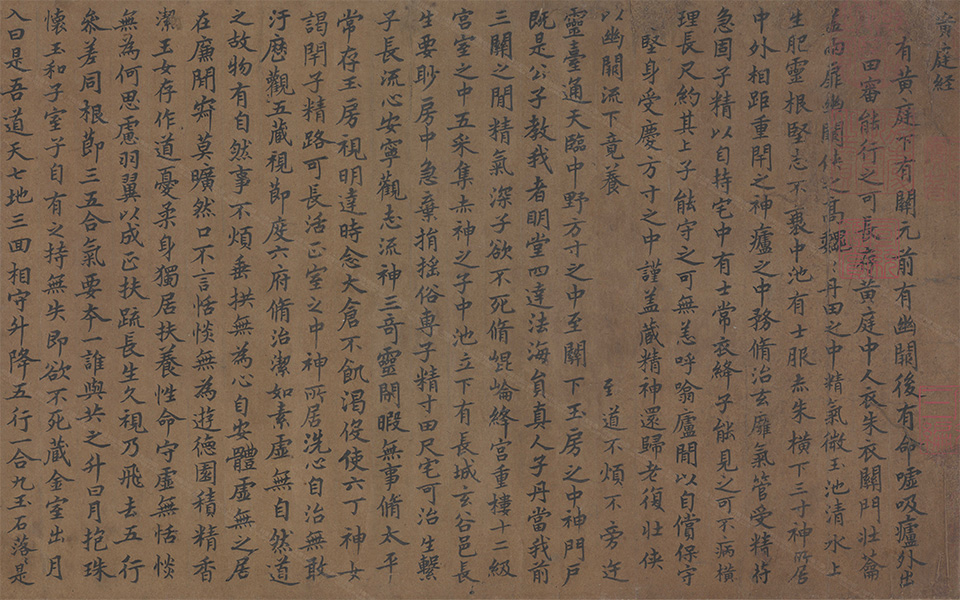 黄庭経
有黄庭下有關元前有幽闕後有命嘘吸廬外出
田審能行之可長存黄庭中人衣朱衣關門壮蘥
兩扉幽關侠之高巍巍丹田之中精氣微玉池清水上
生肥靈根堅志不衰中池有士服赤朱横下三寸神所居
中外相距重閇之神廬之中務脩治玄雍氣管受精符
急固子精以自持宅中有士常衣絳子能見之可不病横
理長尺約其上子能守之可無恙呼噏廬閒以自償保守
堅身受慶方寸之中謹盖藏精神還歸老復壮侠
以幽闕流下竟養 至道不煩不旁迕
靈臺通天臨中野方寸之中至關下玉房之中神門户
既是公子教我者明堂四達法海負真人子丹當我前
三關之閒精氣深子欲不死脩崐崘絳宫重樓十二級
宫室之中五采集赤神之子中池立下有長城玄谷邑長
生要眇房中急棄捐揺俗専子精寸田尺宅可治生繋
子長流心安寧觀志流神三奇靈閑暇無事脩太平
常存玉房視明達時念大倉不飢渇役使六丁神女
謁閇子精路可長活正室之中神所居洗心自治無敢
汙歴觀五藏視節度六府脩治潔如素虚無自然道
之故物有自然事不煩垂拱無為心自安體虚無之居
在廉閒寂莫曠然口不言恬惔無為遊德園積精香
潔玉女存作道憂柔身獨居扶養性命守虚無恬惔
無為何思慮羽翼以成正扶疏長生久視乃飛去五行
叅差同根節三五合氣要夲一誰與共之升日月抱珠
懷玉和子室子自有之持無失即欲不死藏金室出月
入日是吾道天七地三囬相守升降五行一合九玉石落是